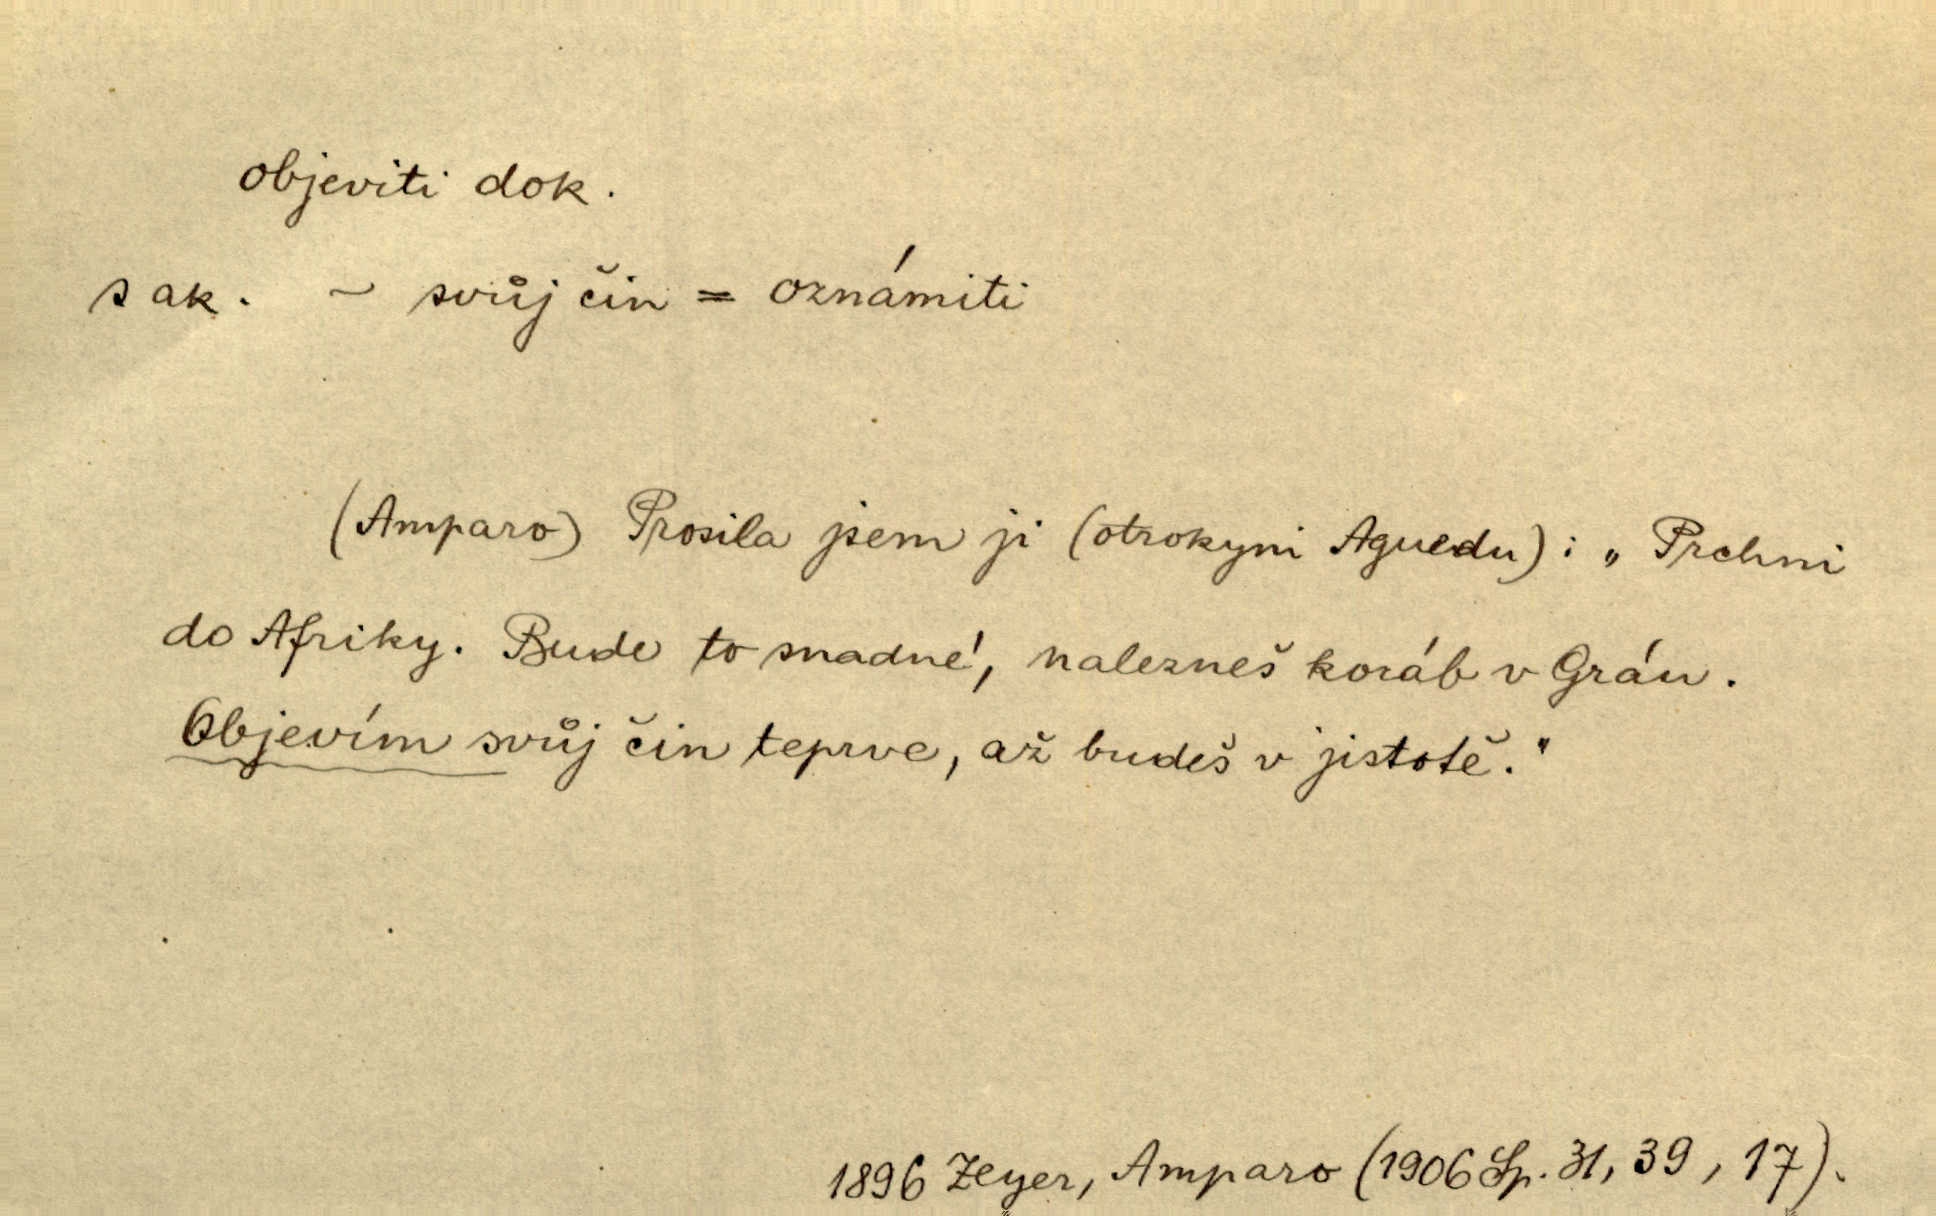 objeviti dok.
s ak. ~ svůj čin = oznámiti
(Amparo) Prosila jsem ji (otrokyni Aguedu): „Prchni
do Afriky. Bude to snadné, nalezneš koráb v Gráu.
Objevím svůj čin teprve, až budeš v jistotě."
1896 Zeyer, Amparo (1906 Sp. 31, 39, 17).